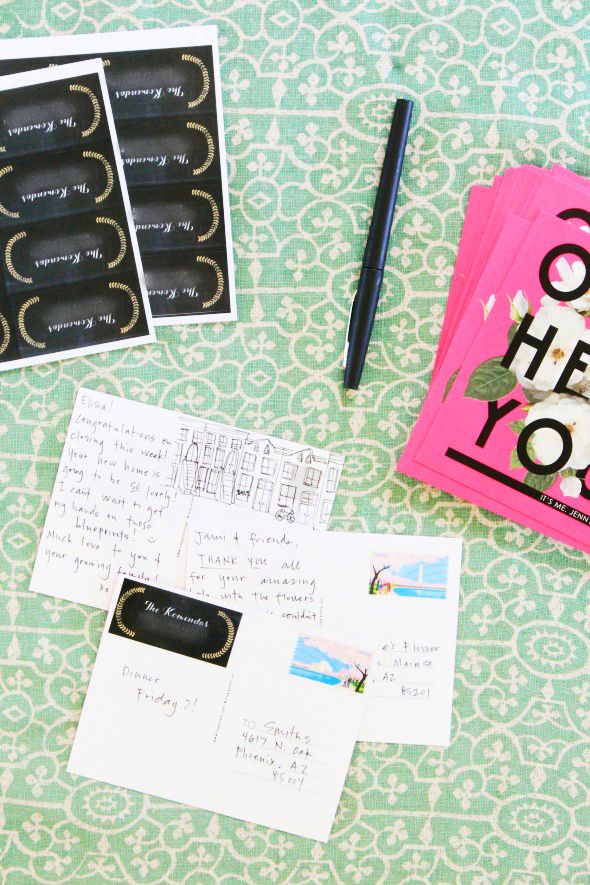 The Komendos
The Komendos
The Komendos
The Komendos
The Komendos
The Komendos
The Komendos
The Komendos
O
HE
YO
IT'S ME, JENN
Elisia!
Congratulations on
closing this week!
your new home is
going to be so lovely
I can't wait to get
my hands on those
blueprints!
Much love to you &
your growing family!
xo
Jami & friends,
THANK YOU all
for your amazing
with the flowers
couldn't
e's Flower
Main St.
AZ
85201
The Komendos
Dinner
Friday?!
TO: Smiths
4617 N. Oak
Phoenix, AZ
85004